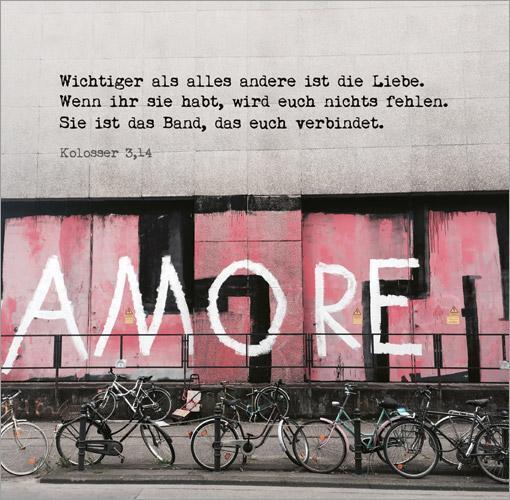 Wichtiger als alles andere ist die Liebe.
Wenn ihr sie habt, wird euch nichts fehlen.
Sie ist das Band, das euch verbindet.
Kolosser 3,14
AMORE